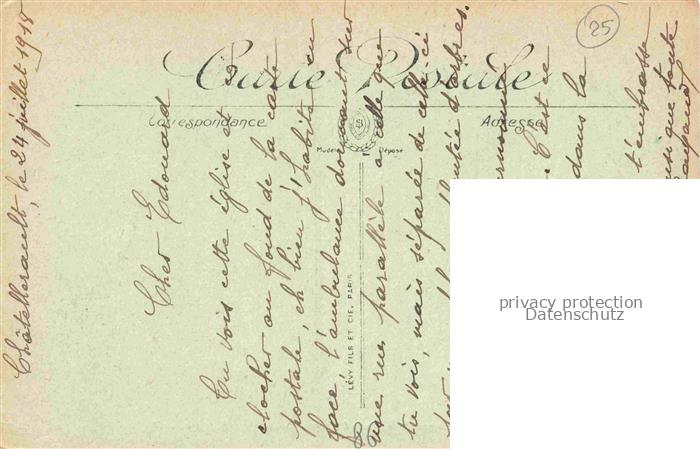 25
Carte Postale
Correspondance
Adresse
Modèle Déposé
LÉVY FILS ET CIE, PARIS
Châtellerault, le 24 juillet 1918
Cher Edouard
Tu vois cette église et ce
clocher au fond de la carte
postale, eh bien j'habite en
face, l'ambulance donnant sur
une rue parallèle à celle que
tu vois, mais séparée de celle-ci
plantée d'arbres.
C'est
dans la
t'embrasse
que toute
privacy protection
Datenschutz